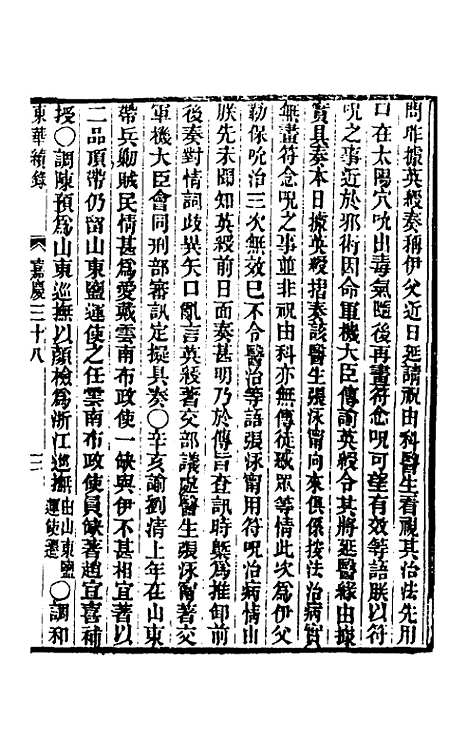 問昨據英綬奏稱伊父近日延請祝由科醫生看視其治法先用
口在太陽穴吮出毒氣隨後再畫符念咒可望有效等語朕以符
咒之事近於邪術因命軍機大臣傳諭英綬令其將延醫緣由據
實具奏本日據英綬摺奏該醫生張泳甯向來俱係按法治病實
無畫符念咒之事並非祝由科亦無傳徒惑眾等情此次為伊父
勒保吮治三次無效已不令醫治等語張泳甯用符咒治病情由
朕先未聞知英綬前日面奏甚明乃於傳旨查訊時輒為推卸前
後奏對情詞歧異矢口亂言英綬著交部議處醫生張泳甯著交
軍機大臣會同刑部審訊定擬具奏〇辛亥諭劉清上年在山東
帶兵勦賊民情甚為愛戴雲南布政使一缺與伊不甚相宜著以
二品頂帶仍留山東鹽運使之任雲南布政使員缺著趙宜喜補
授〇調陳預為山東巡撫以顏檢為浙江巡撫由山東鹽運使遷〇調和
東華續錄 嘉慶三十八 三